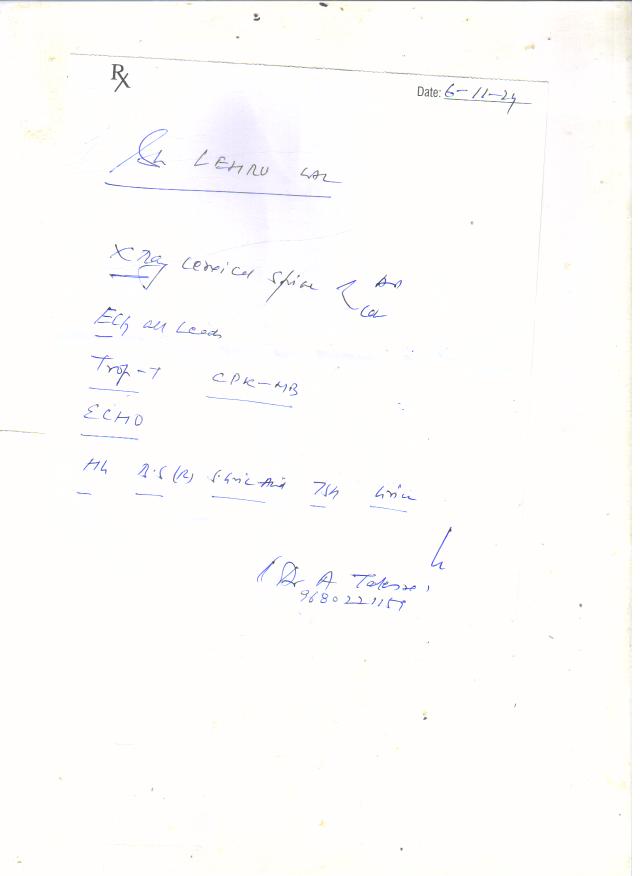 Rx
Date: 6-11-24
Sh LEHRU LAL
X Ray Cervical Spine < AP
Lat
ECG all Leads
Trop-T CPK-MB
ECHO
Hb B.S (R) S. Uric Acid TSH Urine
( Dr A
9680221159